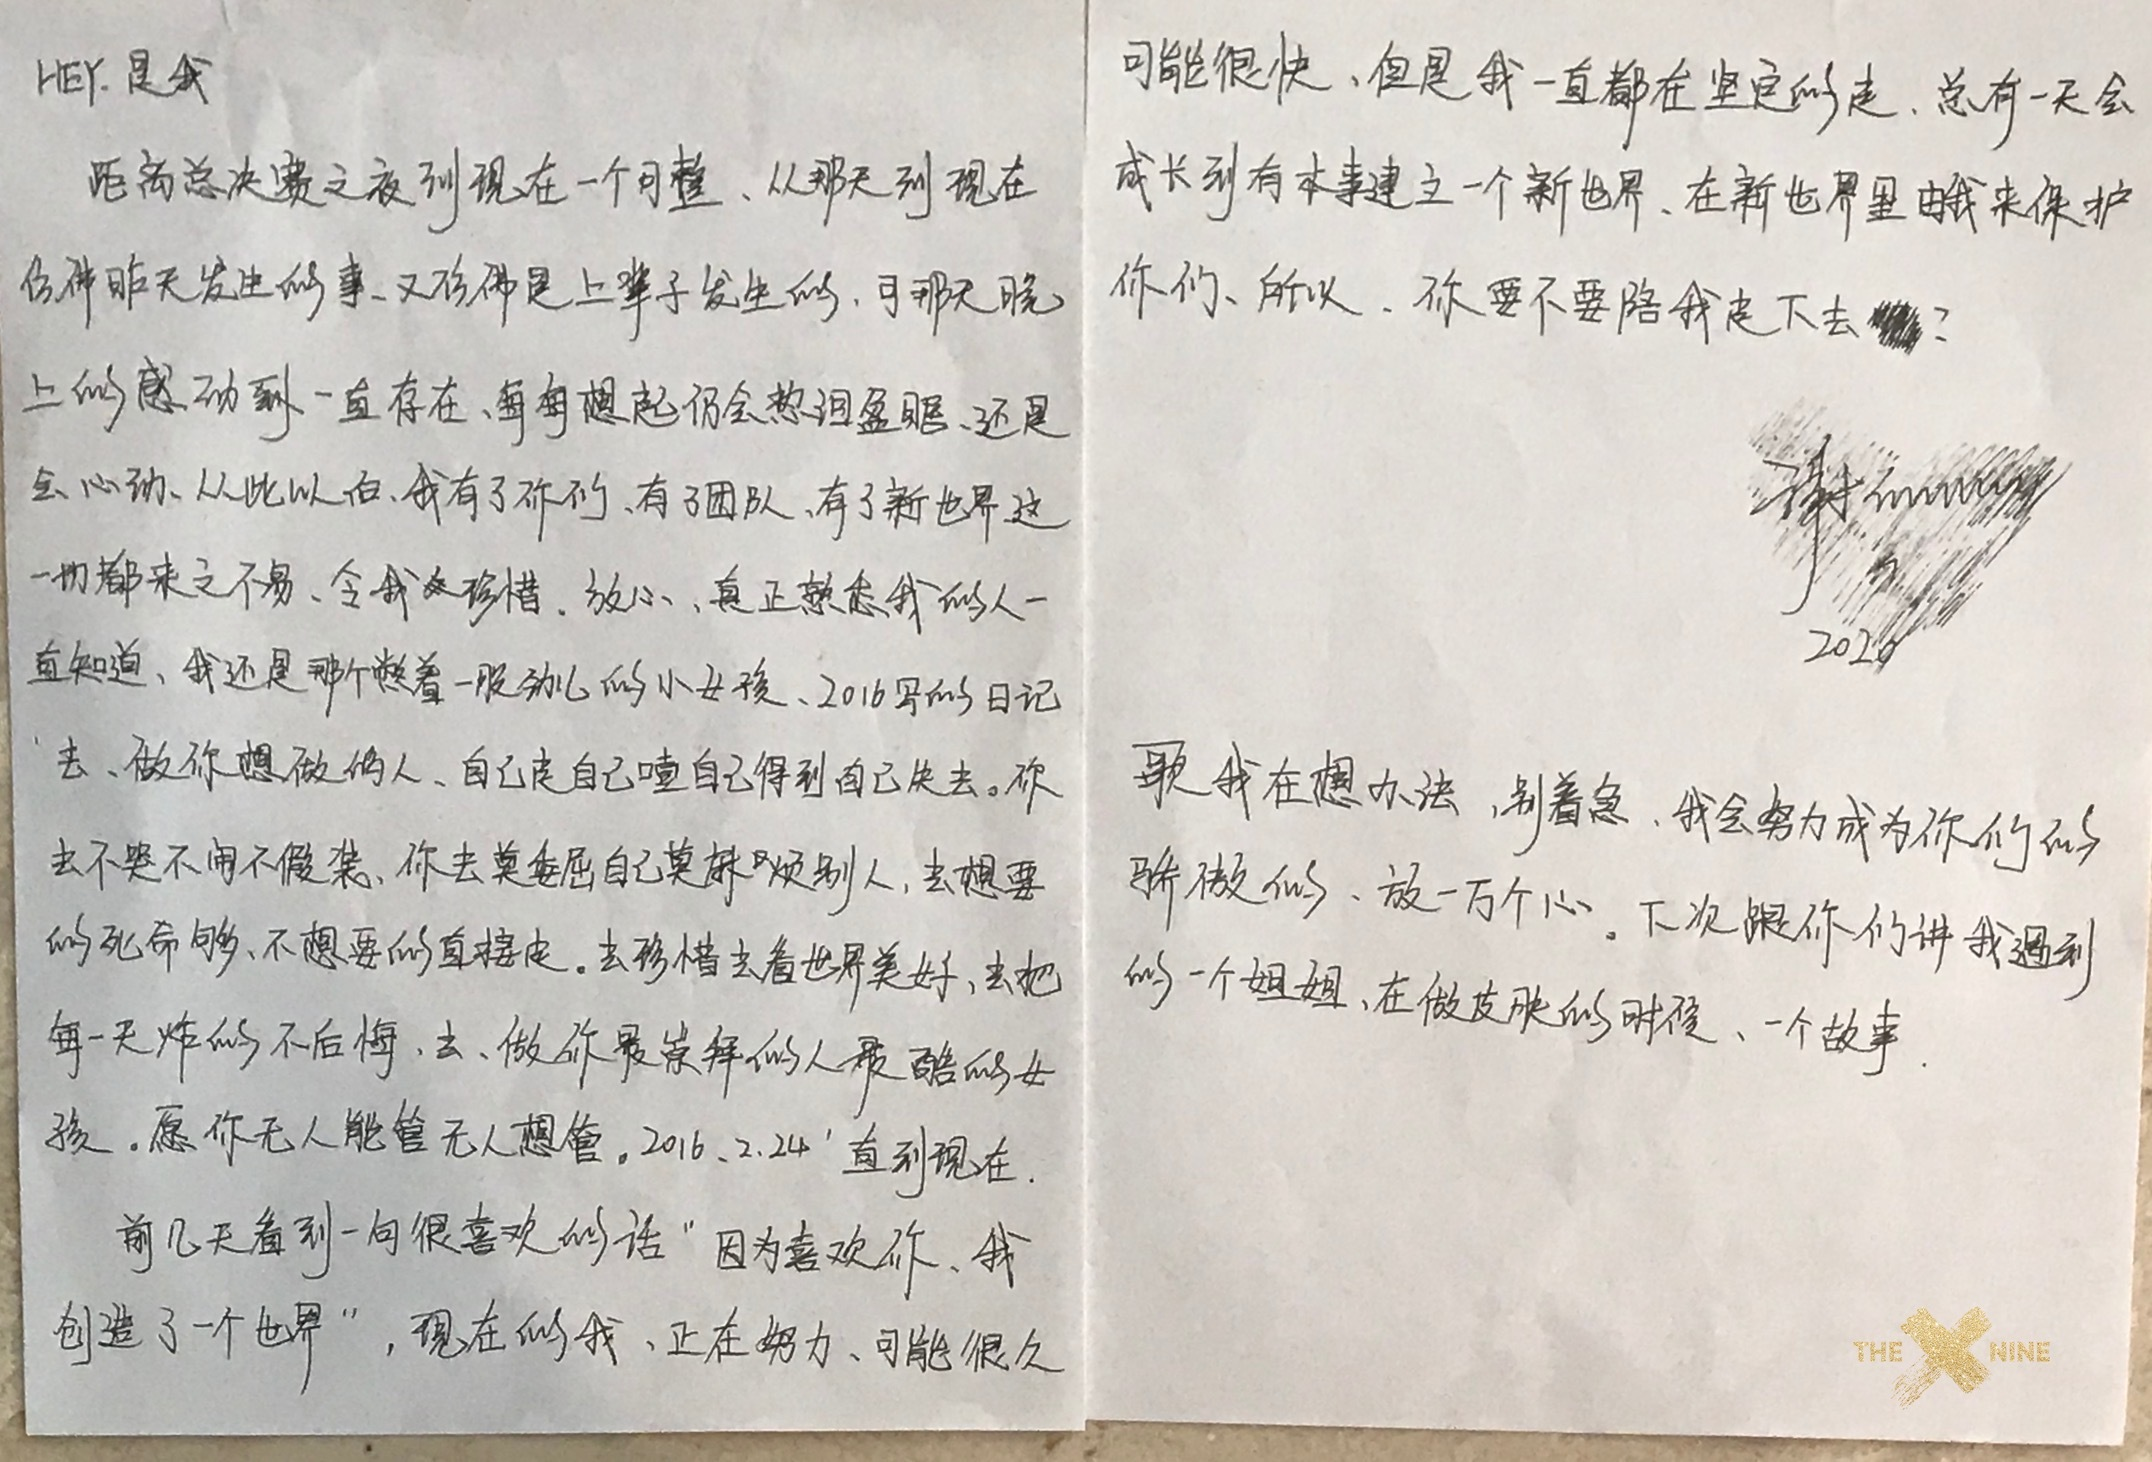 HEY. 是我
距离总决赛之夜到现在一个月整、从那天到现在
仿佛昨天发生的事、又仿佛是上辈子发生的、可那天晚
上的感动到一直存在、每每想起仍会热泪盈眶、还是
会心动、从此以后、我有了你们、有了团队、有了新世界、这
一切都来之不易、令我珍惜。放心、真正熟悉我的人一
直知道、我还是那个憋着一股劲儿的小女孩、2016写的日记
'去、做你想做的人、自己走自己嗑自己得到自己失去。你
去不哭不闹不假装、你去莫委屈自己莫麻烦别人，去想要
的死命够、不想要的直接走。去珍惜去看世界美好、去把
每一天炸的不后悔、去、做你最崇拜的人最酷的女
孩。愿你无人能管无人想管。2016、2.24' 直到现在.
前几天看到一句很喜欢的话"因为喜欢你、我
创造了一个世界"，现在的我、正在努力、可能很久
可能很快、但是我一直都在坚定的走、总有一天会
成长到有本事建立一个新世界、在新世界里由我来保护
你们、所以、你要不要陪我走下去?
谢
2020
歌我在想办法，别着急、我会努力成为你们的
骄傲的、放一万个心。下次跟你们讲我遇到
的一个姐姐、在做皮肤的时候、一个故事.
THE X NINE